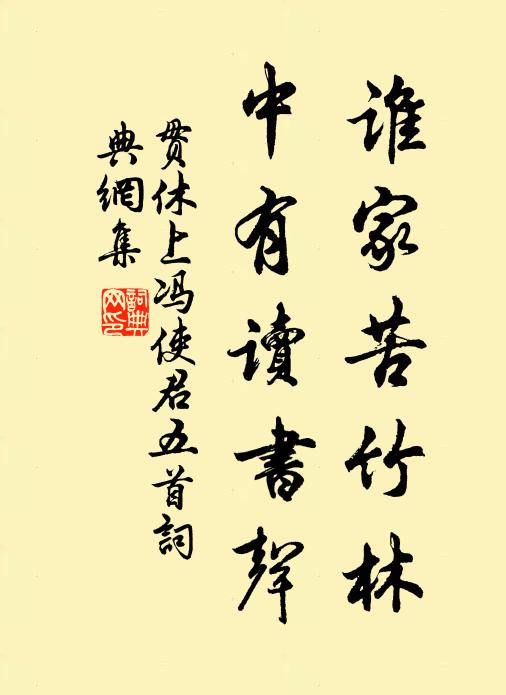 誰家苦竹林
中有讀書聲
貫休上冯使君五首詞
典網集
詞典网印